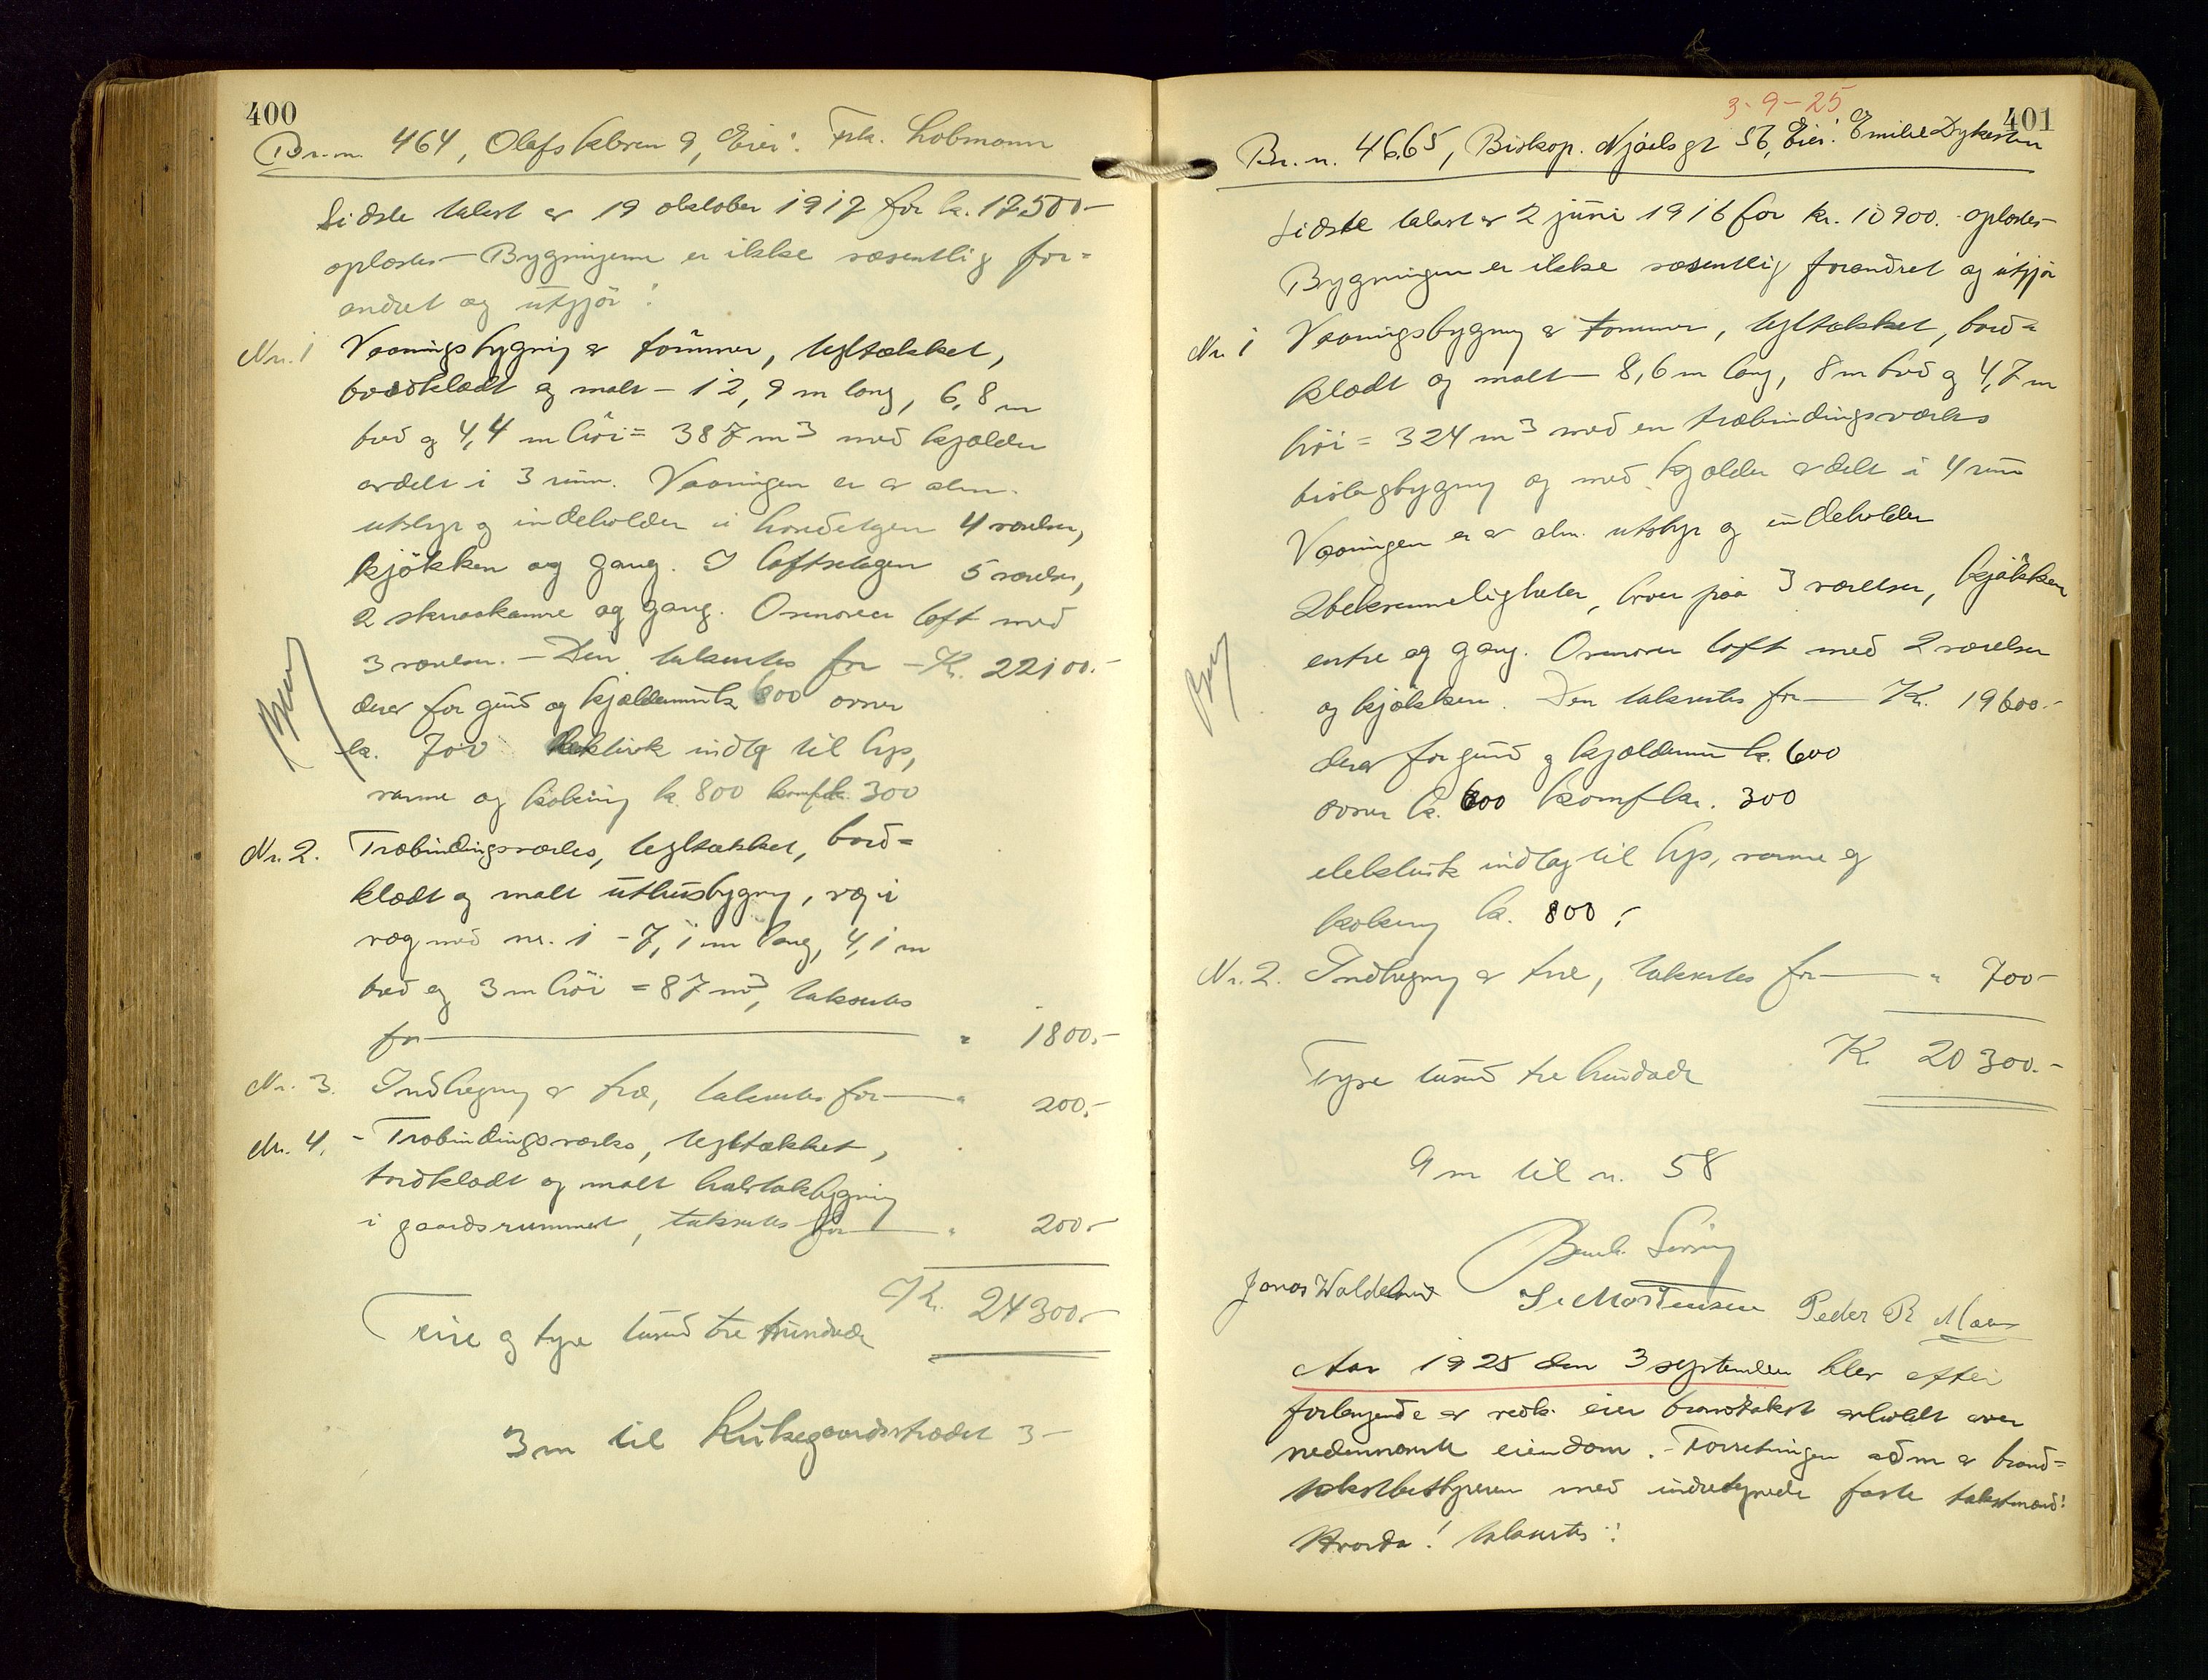 400
Br.n. 464, Olafskleven 9, Eier: Frk. Lobmann
Sidste takst av 19 oktober 1917 for kr. 17500-
oplæstes - Bygningerne er ikke væsentlig for=
andret og utgjör:
Nr. 1 Vaaningsbygning av tömmer, tegltækket,
bordklædt og malt - 12,9 m lang, 6,8 m
bred og 4,4 m höi = 387 m3 med kjælder
avdelt i 3 rum. Vaaningen er av alm.
utstyr og indeholder i hovedetagen 4 værelser,
kjökken og gang. I loftsetagen 5 værelser,
2 skraakamre og gang. Ovenover loft med
3 værelser. - Den taksertes for - Kr. 22100.-
derav for grund og kjældermur kr. 600 ovner
kr. 700 elektrisk indlæg til lys,
varme og kokning kr. 800 komf. kr. 300
Nr. 2. Træbindingsverks, tegltækket, bord=
klædt og malt uthusbygning, væg i
væg med nr. 1 - 7,1 m lang, 4,1 m
bred og 3 m höi = 87 m3, taksertes
for " 1800.-
Nr. 3. Indhegning av træ, taksertes for " 200.-
Nr. 4. - Træbindingsverks, tegltækket,
bordklædt og malt halvtakbygning
i gaardsrummet, taksertes for " 200.-
Kr. 24300.-
Fire og tyve tusend tre hundrede
3 m til Kirkegaardsstrædet 3-
401
3-9-25
Br. n. 465, Biskop. Njaelsgt 56, Eier: Emilie Dykesten
Sidste takst av 2 juni 1916 for kr. 10900. oplæstes-
Bygningen er ikke væsentlig forandret og utgjör
Nr. 1 Vaaningsbygning av tömmer, tegltækket, bord=
klædt og malt - 8,6 m lang, 8 m bred og 4,7 m
höi = 324 m3 med en træbindingsverks
bislagbygning og med kjælder avdelt i 4 rum
Vaaningen er av alm. utstyr og indeholder
2 bekvemmeligheter, hver paa 3 værelser, kjökken
entre og gang. Ovenover loft med 2 værelser
og kjökken. Den taksertes for - Kr. 19600.-
derav for grund og kjældermur kr. 600
ovner kr. 600 komf kr. 300
elektrisk indlæg til lys, varme og
kokning kr. 800.-
Nr. 2. Indhegning av træ, taksertes for " 700-
Kr. 20300.-
Tyve tusend tre hundrede
9 m til n. 58
Jonas Waldeland S. Mortensen Peder R
Aar 1925 den 3 september blev efter
forlangende av vedk. eier brandtakst avholdt over
nedennævnte eiendom. - Forretningen adm av brand=
takstbestyreren med undertegnede faste takstmænd:
Hvorda: taksertes: